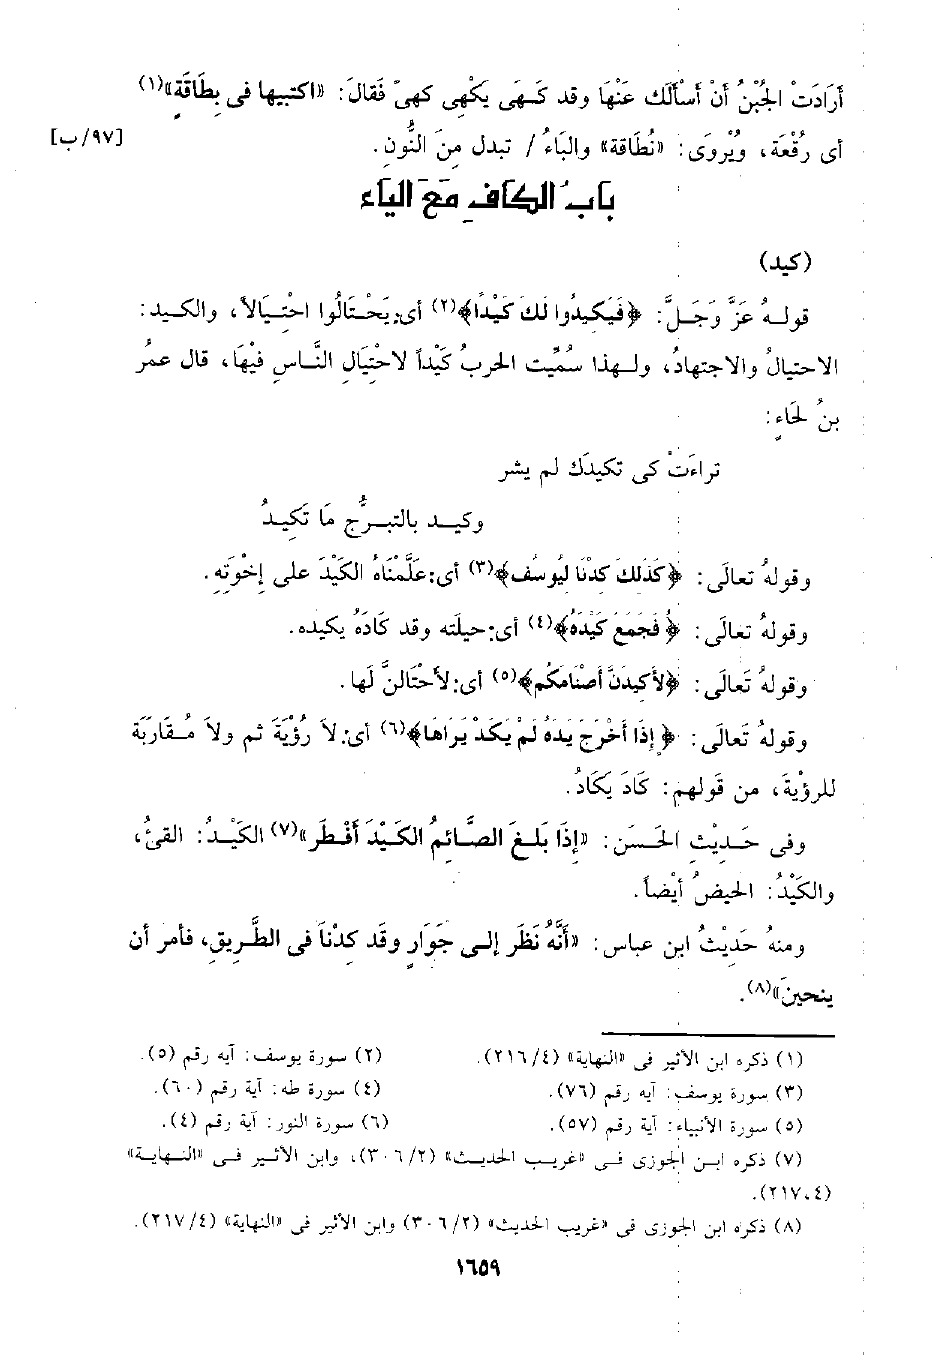 أَرَادَتْ الجُبْنُ أَنْ أَسْأَلَكَ عَنْهَا وقد كَهَى يَكْهِى كهىً فَقالَ: «اكتبيها فى بِطَاقَةٍ»(١)
أى رُقْعَة، ويُرْوَى: «نُطَاقة» والبَاءُ / تبدل مِنَ النُّونِ.
[٩٧/ب]
بابُ الكافِ مَعَ الياء
(كيد)
قولهُ عَزَّ وَجَلَّ: ﴿فَيَكِيدُوا لَكَ كَيْدًا﴾(٢) أى: يَحْتَالُوا احْتِيالاً، والكيد:
الاحتيالُ والاجتهادُ، ولهذا سُمِّيت الحربُ كَيْداً لاحْتِيَالِ النَّاسِ فِيْهَا، قال عمرُ
بنُ لَجَاءٍ:
تراءَتْ كى تكيدَك لم يشر
وكيد بالتبرُّج مَا تَكِيدُ
وقولهُ تعالَى: ﴿كَذَلِكَ كِدْنَا لِيُوسُفَ﴾(٣) أى: عَلَّمْنَاهُ الكَيْدَ على إِخْوَتِهِ.
وقولهُ تعالَى: ﴿فَجَمَعَ كَيْدَهُ﴾(٤) أى: حيلَته وقد كَادَهُ يكيده.
وقولهُ تَعالَى: ﴿لأَكِيدَنَّ أَصْنَامَكُم﴾(٥) أى: لأحْتَالنَّ لَها.
وقولهُ تَعَالَى: ﴿إِذَا أَخْرَجَ يَدَهُ لَمْ يَكَدْ يَرَاهَا﴾(٦) أى: لاَ رُؤْيَةَ ثم ولاَ مُقَارَبَة
للرؤْيةَ، من قَولهم: كَادَ يَكَادُ.
وفى حَدِيثِ الحَسَنِ: «إِذَا بَلَغَ الصَّائِمُ الكَيْدَ أَفْطَر»(٧) الكَيْدُ: القئُ،
والكَيْدُ: الحيضُ أيْضاً.
ومنهُ حَدِيْثُ ابن عباس: «أَنَّهُ نَظَر إلى جَوَارٍ وقَد كِدْنَ فى الطَّرِيقِ، فأمر أن
ينحينَ»(٨).
(١) ذكره ابن الأثير فى «النهاية» (٢١٦/٤).
(٢) سورة يوسف: آيه رقم (٥).
(٣) سورة يوسف: آيه رقم (٧٦).
(٤) سورة طه: آية رقم (٦٠).
(٥) سورة الأنبياء: آية رقم (٥٧).
(٦) سورة النور: آية رقم (٤).
(٧) ذكره ابن الجوزى فى «غريب الحديث» (٣٠٦/٢)، وابن الأثير فى «النهاية»
(٢١٧،٤).
(٨) ذكره ابن الجوزى فى «غريب الحديث» (٣٠٦/٢) وابن الأثير فى «النهاية» (٢١٧/٤).
١٦٥٩